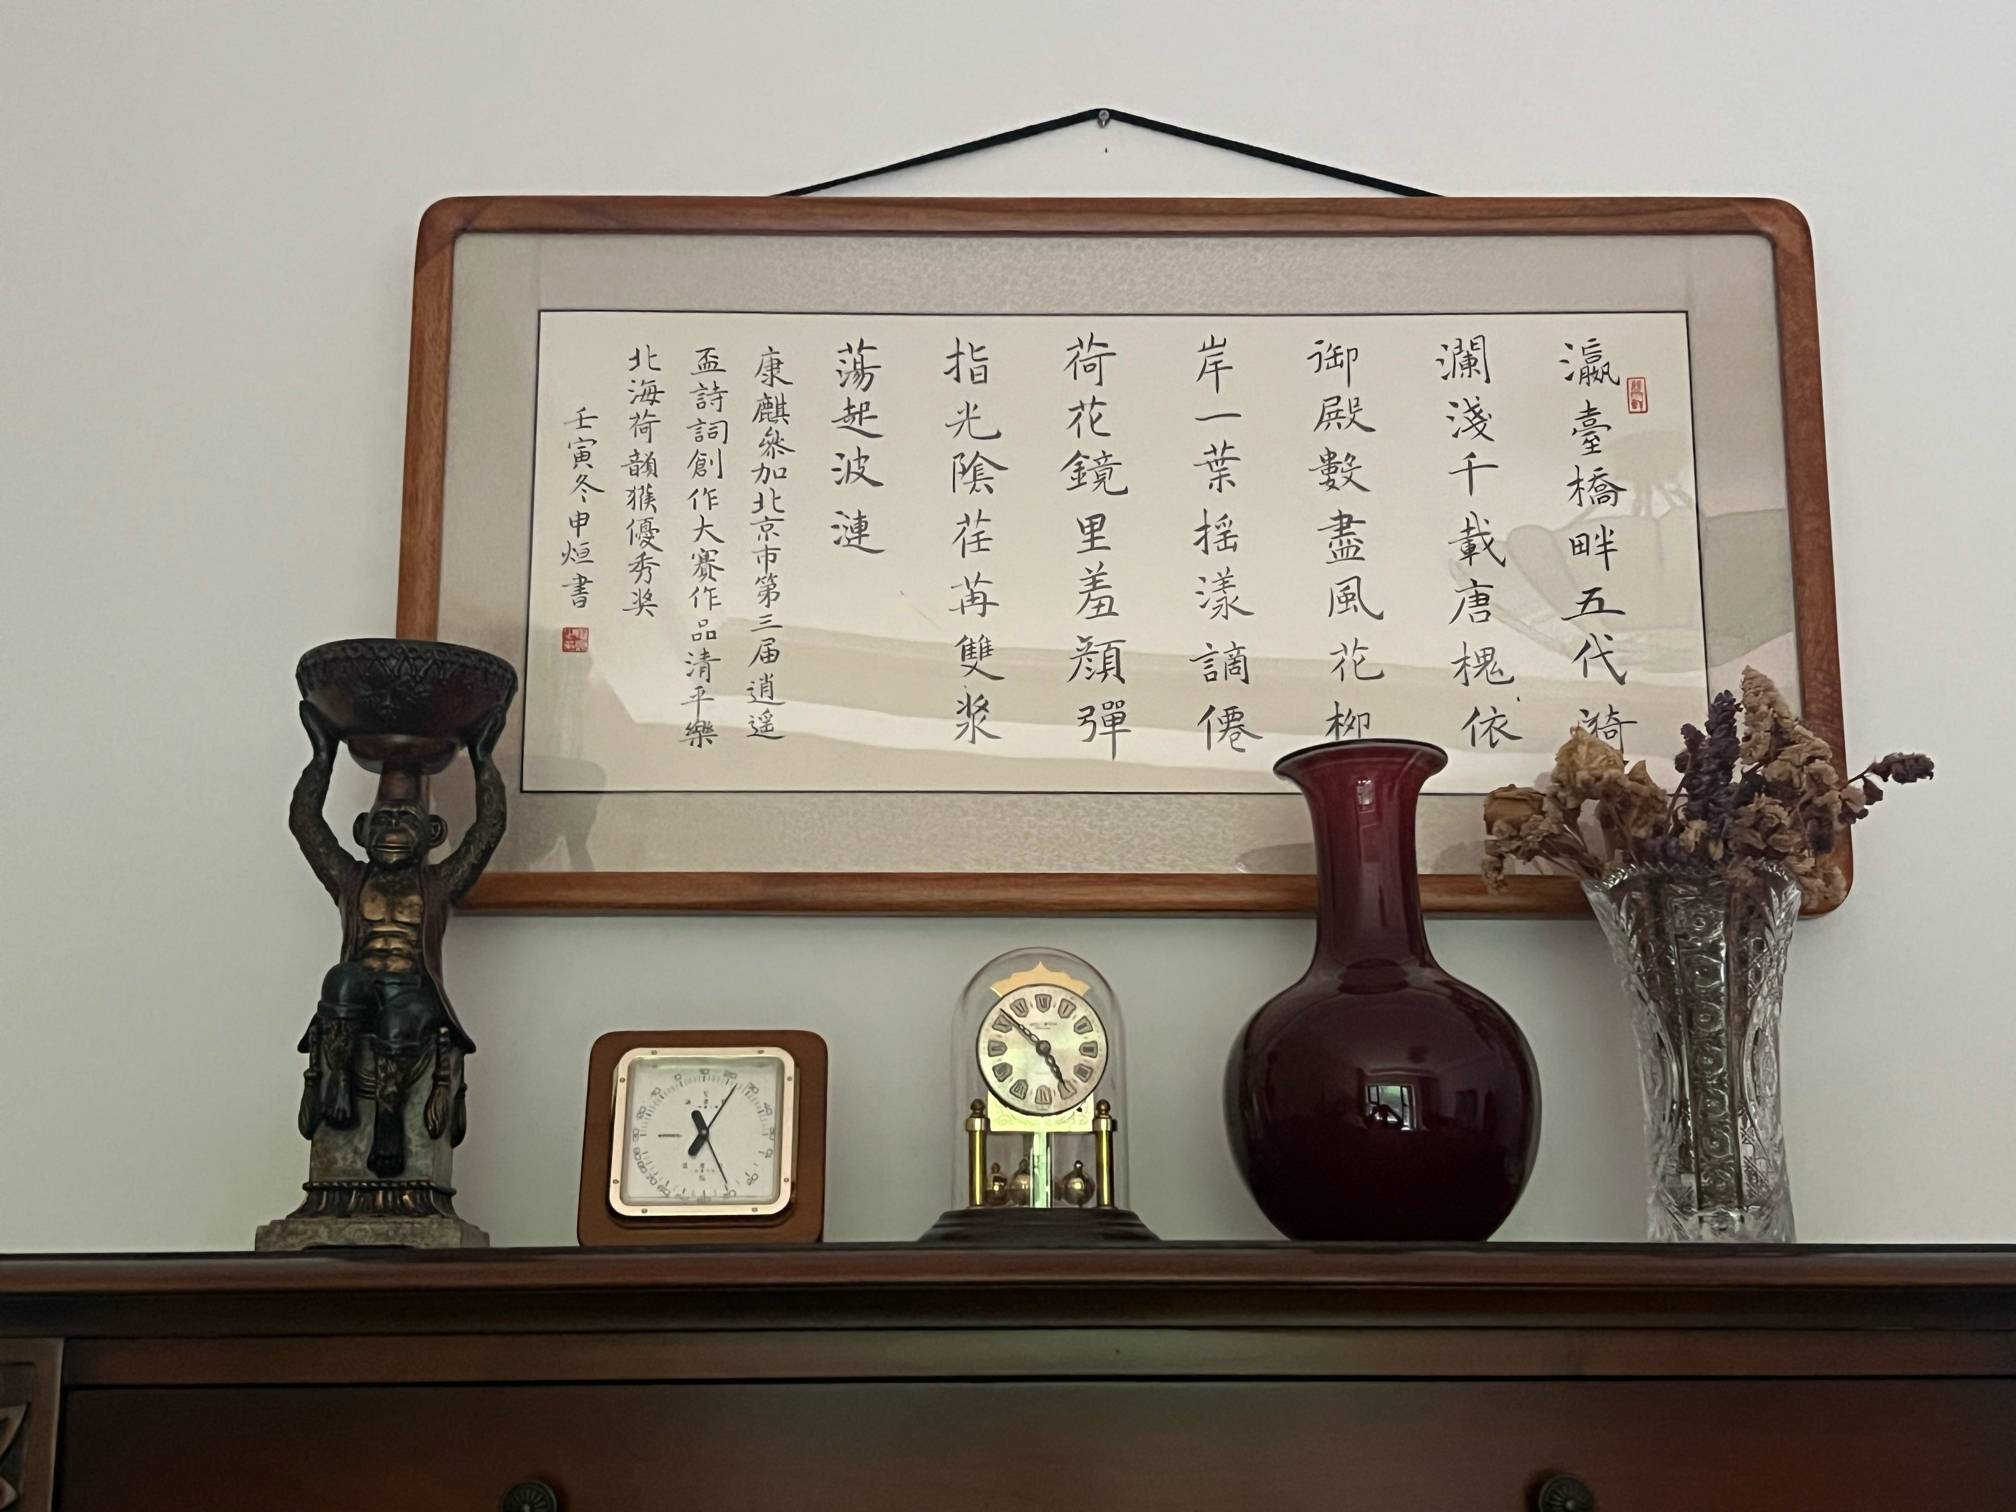 瀛臺橋畔五代漪
瀾淺千載唐槐依
御殿數盡風花柳
岸一葉摇漾謫僊
荷花鏡里羞顔彈
指光陰荏苒雙槳
蕩起波漣
康麒參加北京市第三届逍遥
盃詩詞創作大賽作品清平樂
北海荷韻獲優秀奖
壬寅冬申烜書